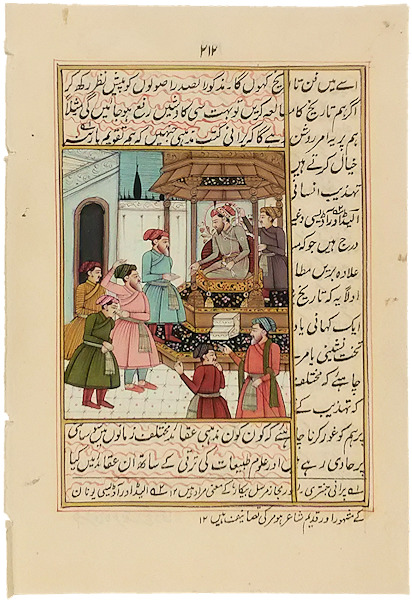 ۲۱۲
اسے میں فن تاریخ کہوں گا۔ مذکورالصدر اصولوں کو پیش نظر رکھ کر
اگر ہم تاریخ کا مطالعہ کریں تو بہت سی کاوشیں رفع ہو جائیں گی مثلاً
ہم پر یہ امر روشن ہے گا کہ پرانی کتب مذہبی جنہیں کہ ہم تقویم پارینہ
خیال کرتے ہیں
تہذیب انسانی
الیڈ اور اڈیسی وغیرہ
درج ہیں جو کہ
علاوہ بریں مطا
اولاً یہ کہ تاریخ
ایک کہانی یا د
تخت نشینی یا مر
چاہئے کہ مختلف
کہ تہذیب کے
پر ہم کو غور کرنا چاہئے کہ کون کون مذہبی عقائد مختلف زمانوں میں
پر حاوی رہے ہیں اور علوم طبیعات کی ترقی کے ساتھ ان عقائد میں کیا
لے پرانی جنتری اور مجازِ مرسل بیکار کے معنی مراد ہیں ۱۲ لے الیڈ اور اڈیسی یونان
کے مشہور اور قدیم شاعر ہومر کی تصانیف ہیں ۱۲